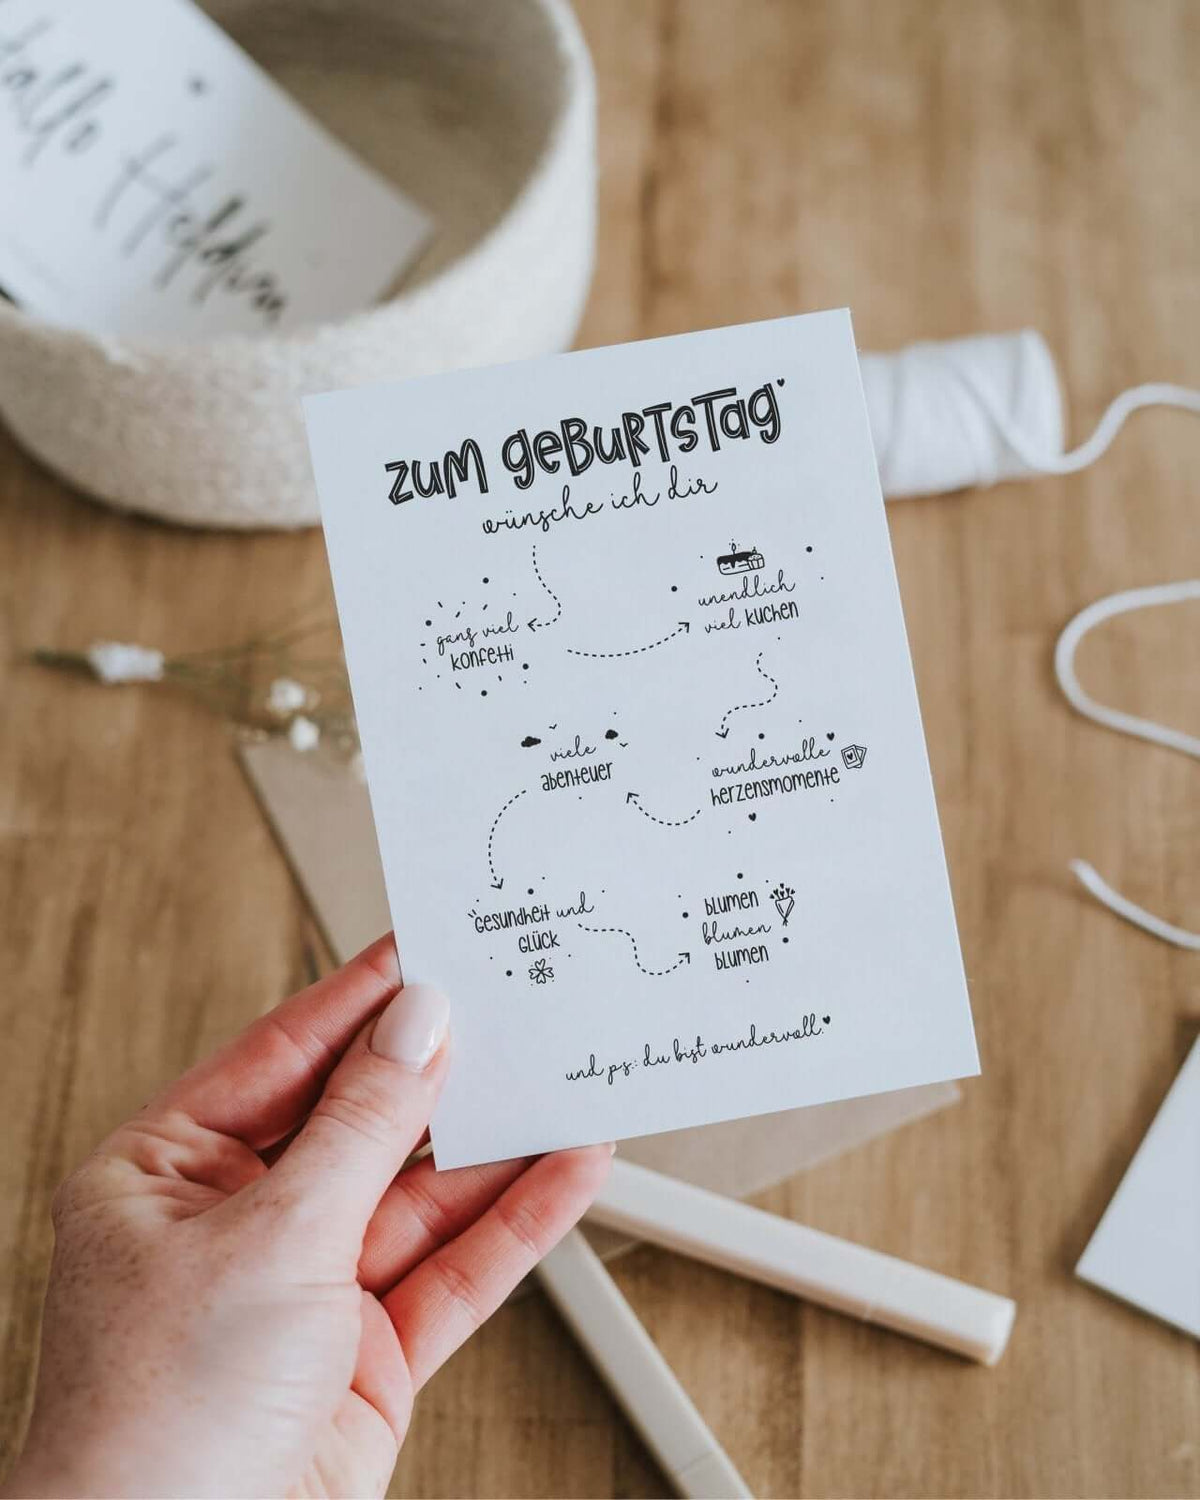 Hallo Heldin
zum geburtstag
wünsche ich dir
ganz viel
konfetti
unendlich
viel kuchen
wundervolle
herzensmomente
viele
abenteuer
gesundheit und
glück
blumen
blumen
blumen
und ps: du bist wundervoll.